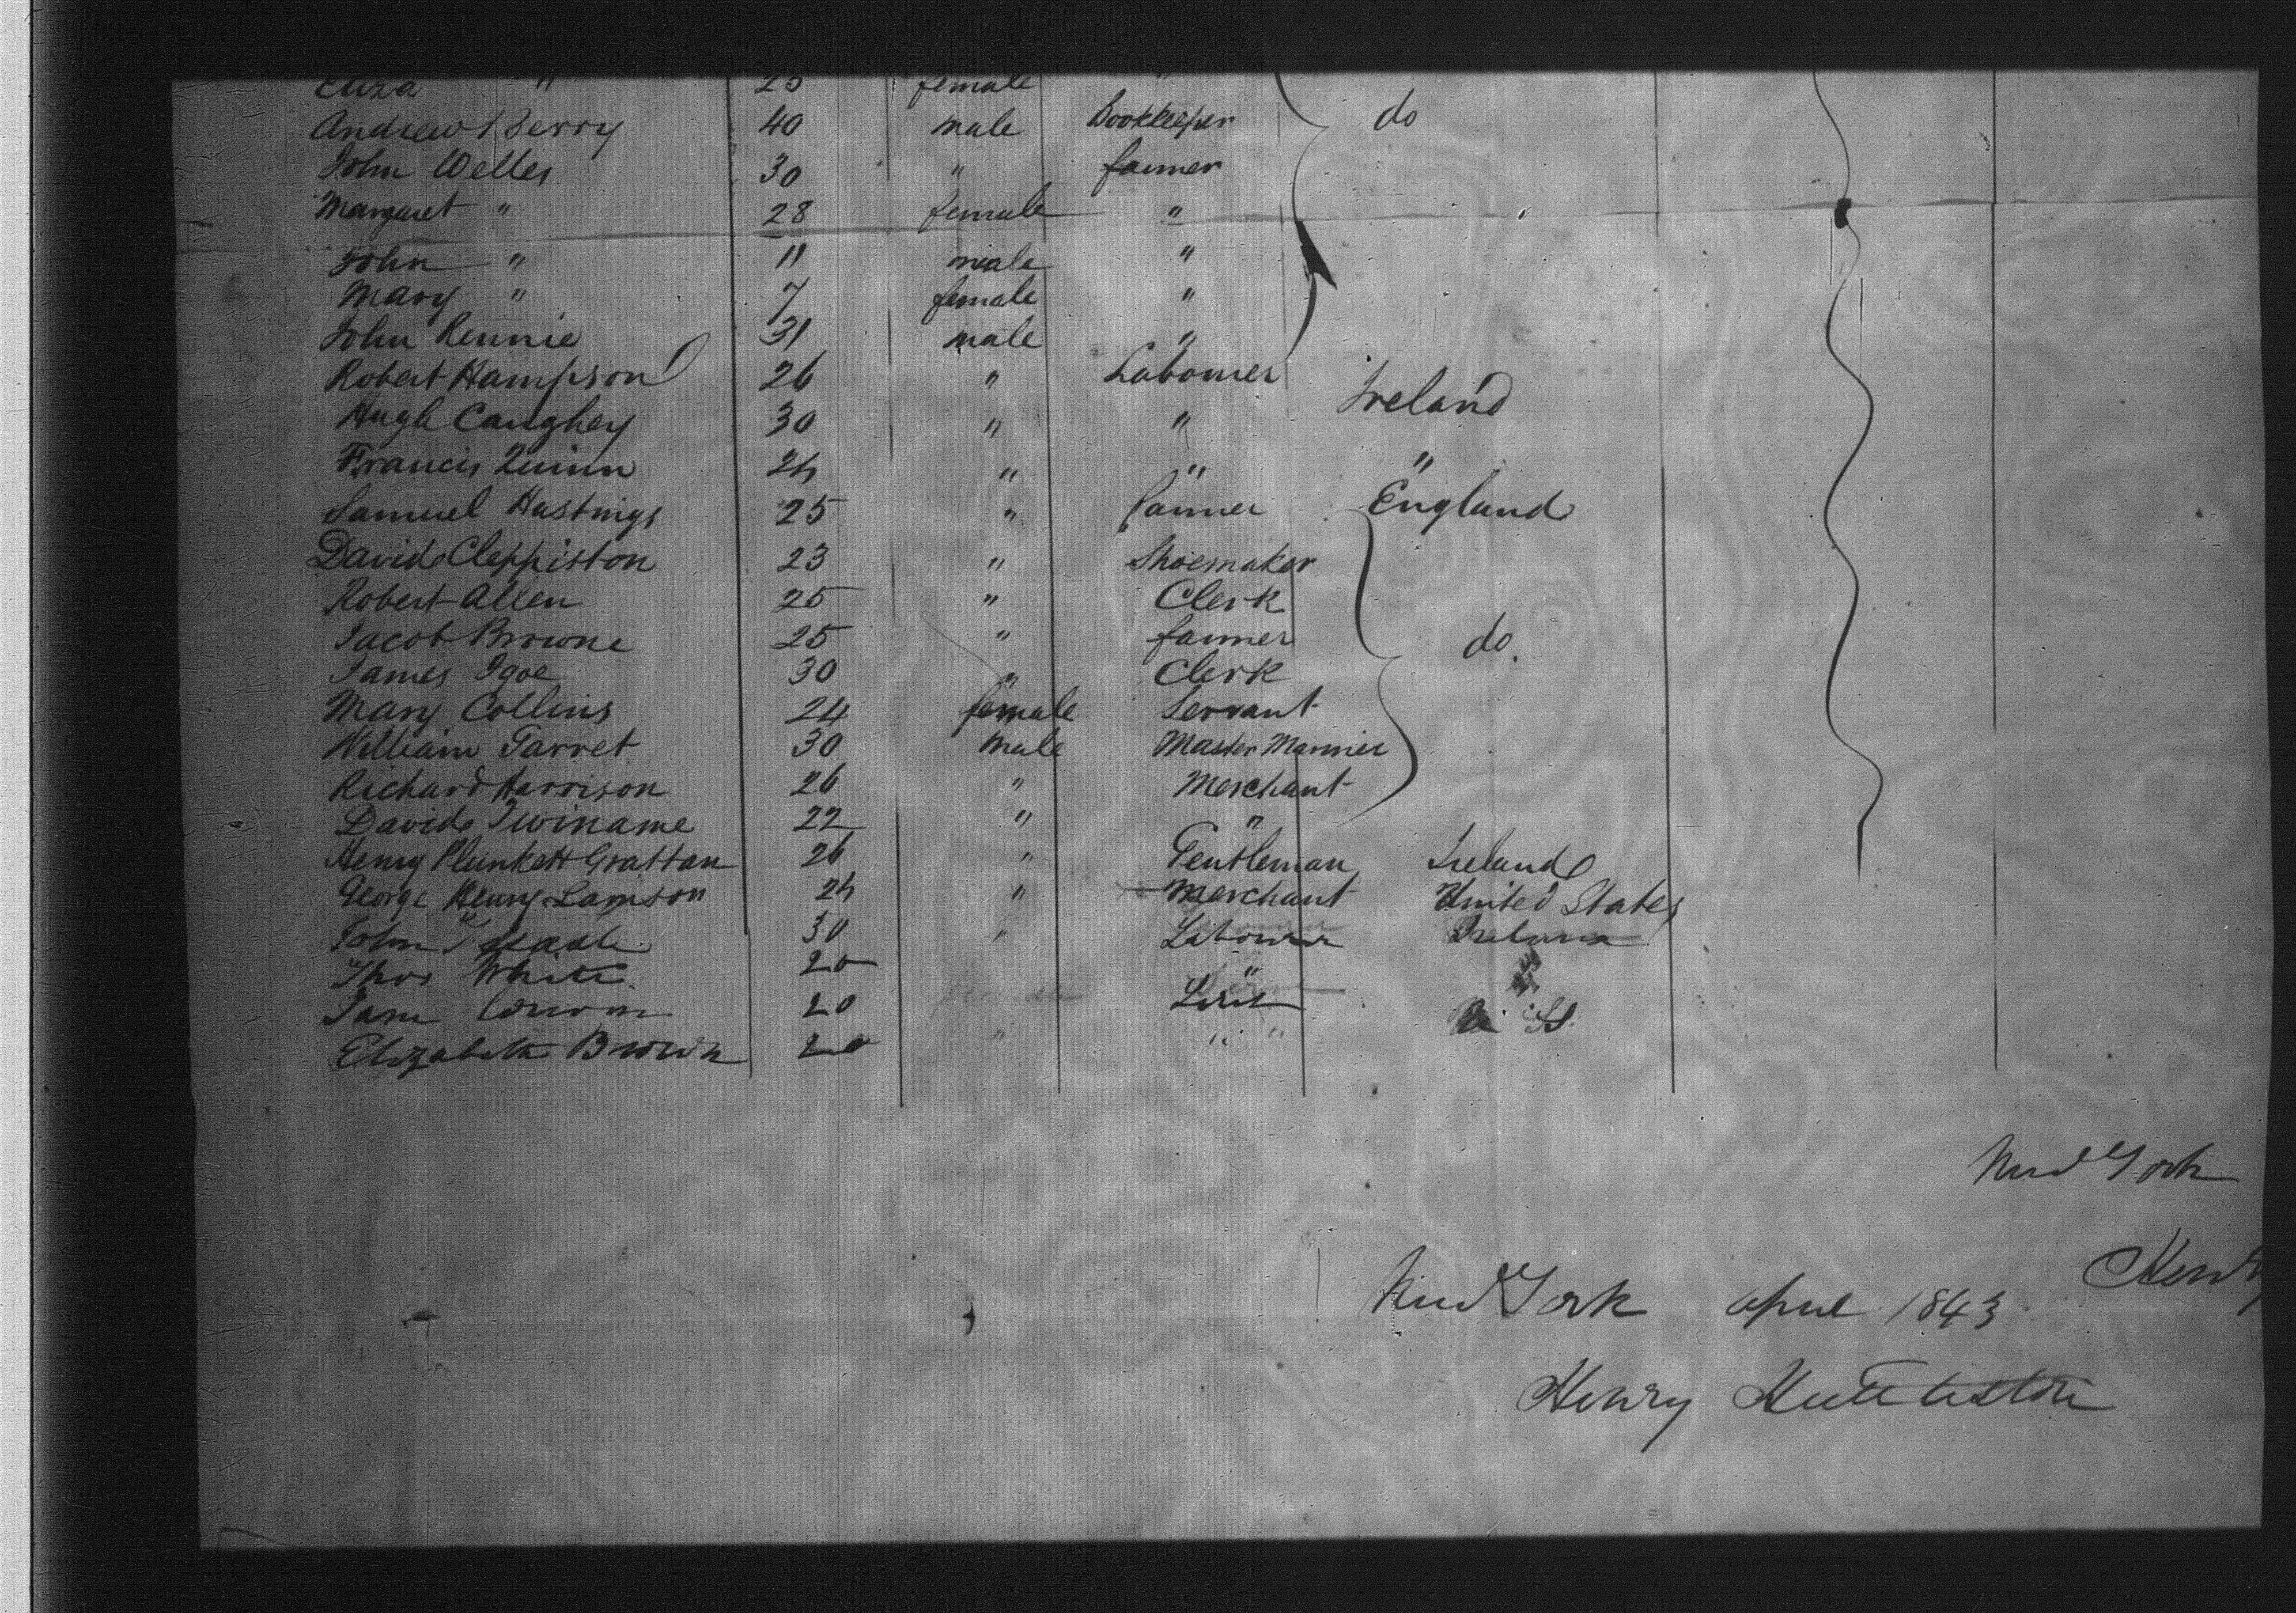 Eliza " 25 female "
Andrew Berry 40 male Bookkeeper do
John Welles 30 " farmer
Margaret " 28 female "
John " 11 male "
Mary " 7 female "
John Rennie 31 male "
Robert Hampson 26 " Labourer Ireland
Hugh Caughey 30 " "
Francis Quinn 24 " " "
Samuel Hastings 25 " farmer England
David Cleppiston 23 " Shoemaker
Robert Allen 25 " Clerk
Jacob Browne 25 " farmer do.
James Igoe 30 " Clerk
Mary Collins 24 female Servant
William Tarret 30 male Master Mariner
Richard Harrison 26 " Merchant
David Twiname 22 " "
Henry Plunkett Grattan 26 " Gentleman Ireland
George Henry Lamson 24 " Merchant United States
John 30 " Labourer Ireland
Thos White 20 "
Jane 20 female
Elizabeth Brown 20 " " "
New York
Henry
New York April 1843
Henry Huttleston